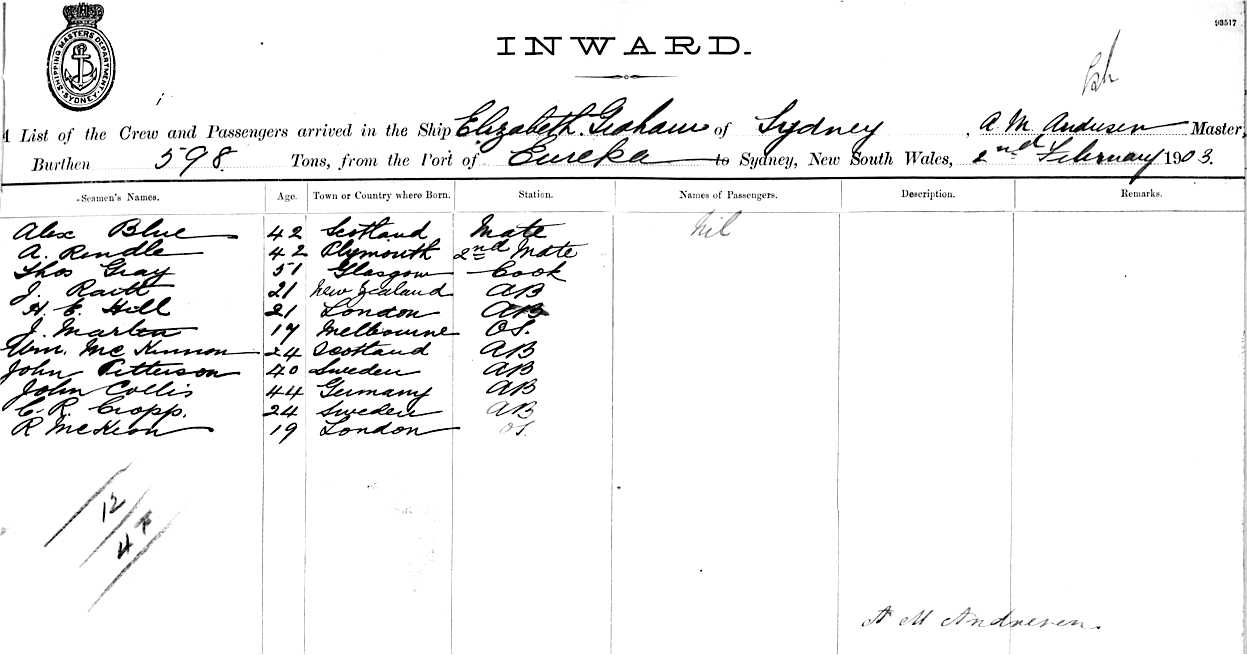 93517
SHIPPING MASTERS DEPARTMENT. SYDNEY.
INWARD.
A List of the Crew and Passengers arrived in the Ship Elizabeth Graham of Sydney, A. M. Andresen Master,
Burthen 598 Tons, from the Port of Eureka to Sydney, New South Wales, 2nd February 1903.
Seamen's Names. Age. Town or Country where Born. Station. Names of Passengers. Description. Remarks.
Alex Blue 42 Scotland Mate Nil
A. Rendle 42 Plymouth 2nd Mate
Thos Gray 51 Glasgow Cook
J. Raitt 21 New Zealand AB
H. E. Hill 21 London AB
J. Martin 17 Melbourne OS.
Wm. McKinnon 24 Scotland AB
John Petterson 40 Sweden AB
John Collis 44 Germany AB
C. R. Cropp. 24 Sweden AB
R McKeon 19 London OS.
12
A M Andresen.